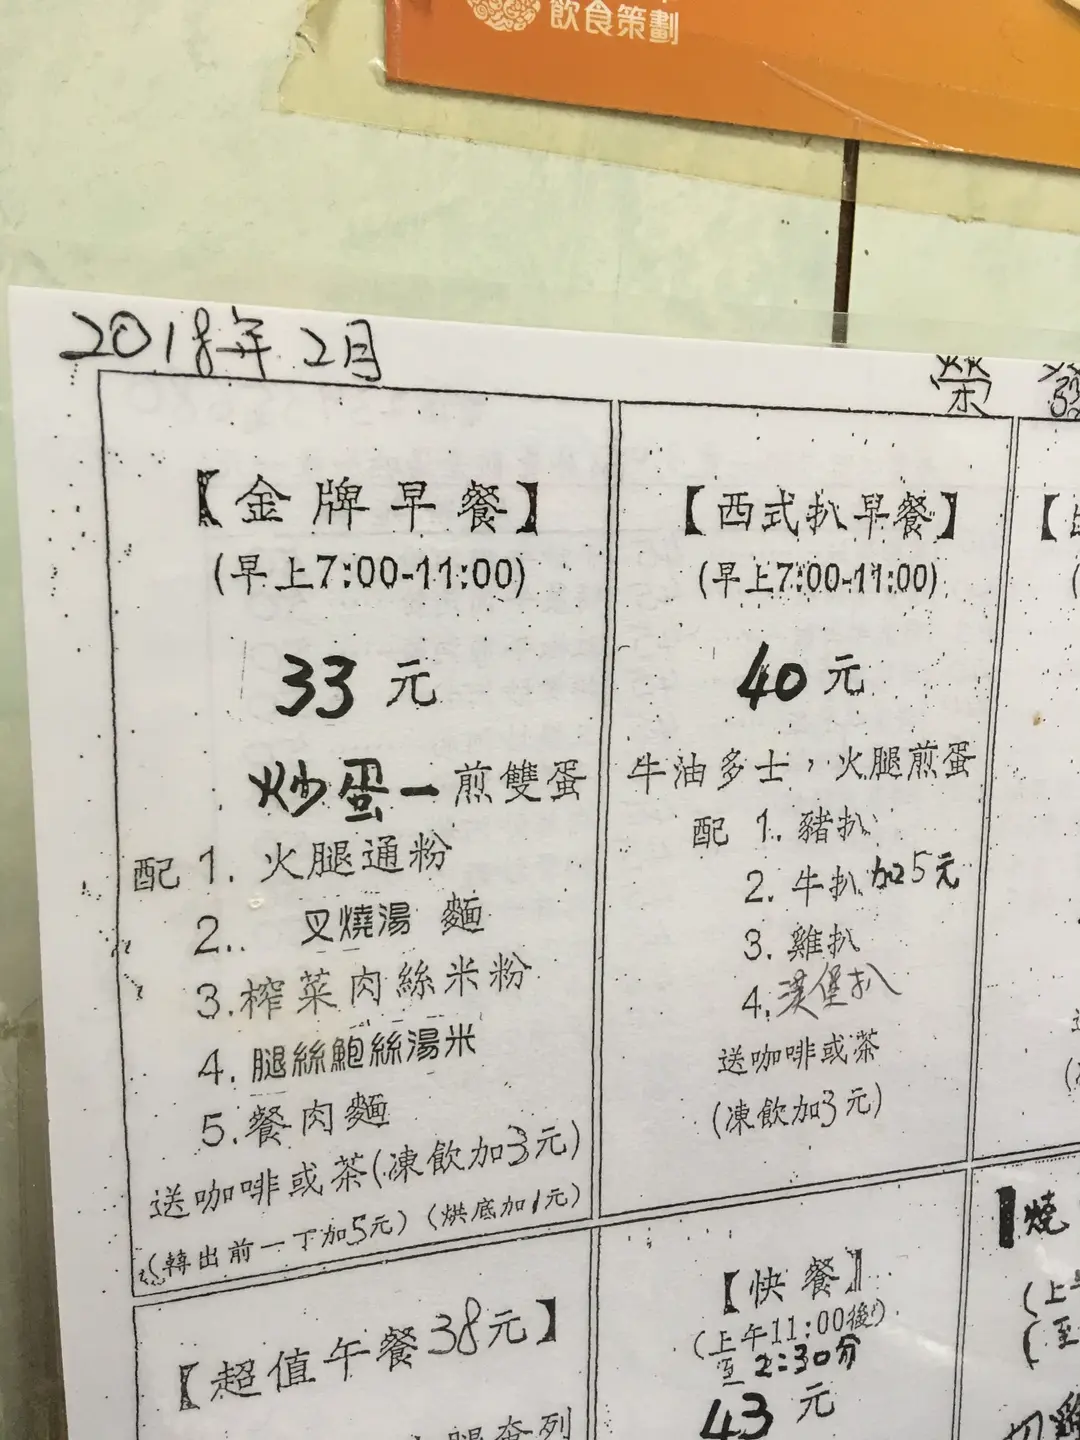 飲食策劃
2018年2月
榮
【金牌早餐】
(早上7:00-11:00)
33元
炒蛋一煎雙蛋
配 1. 火腿通粉
2.. 叉燒湯 麵
3. 榨菜肉絲米粉
4. 腿絲鮑絲湯米
5. 餐肉麵
送咖啡或茶(凍飲加3元)
(轉出前一丁加5元)(烘底加1元)
【西式扒早餐】
(早上7:00-11:00)
40元
牛油多士，火腿煎蛋
配 1. 豬扒
2. 牛扒 加5元
3. 雞扒
4. 漢堡扒
送咖啡或茶
(凍飲加3元)
【超值午餐38元】
【快餐】
(上午11:00後)
至2:30分
43元
【燒
(上午
(至
切雞